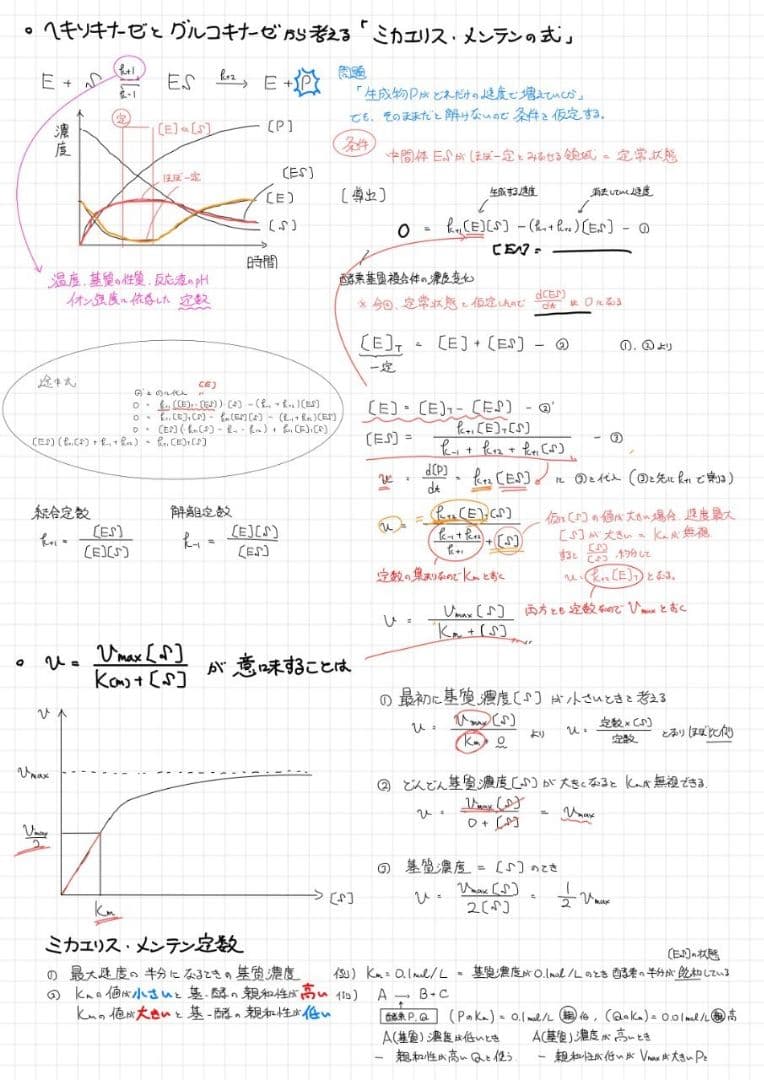 。ヘキソキナーゼとグルコキナーゼから考える「ミカエリス・メンテンの式」
E + S k+1 k-1 ES k+2 → E + P
問題
「生成物Pがどれだけの速度で増えていくか」
でも、そのままだと解けないので条件を仮定する。
条件
中間体ESがほぼ一定とみなせる領域 = 定常状態
濃度
定
[E]∝[S]
ほぼ一定
[P]
[ES]
[E]
[S]
時間
温度、基質の性質、反応液のpH
イオン強度に依存した 定数
[導出]
生成する速度
消失していく速度
0 = k+1[E][S] - (k-1+k+2)[ES] - ①
酵素基質複合体の濃度変化
※今回、定常状態と仮定したので d[ES]/dt は0になる
[E]T = [E] + [ES] - ②
一定
①、②より
途中式
[E]
0 = k+1([E]T-[ES])・[S] - (k-1+k+2)[ES]
0 = k+1[E]T[S] - k+1[ES][S] - (k-1+k+2)[ES]
[ES](k+1[S] + k-1 + k+2) = k+1[E]T[S]
[E] = [E]T - [ES] - ②'
[ES] = k+1[E]T[S] / k-1 + k+2 + k+1[S] - ③
v = d[P]/dt = k+2[ES] に ③を代入 (③を先にk+1で割る)
結合定数
k+1 = [ES] / [E][S]
解離定数
k-1 = [E][S] / [ES]
v = k+2[E]T[S] / (k-1+k+2 / k+1) + [S]
定数の集まりなのでKmとおく
仮に[S]の値が大きい場合、速度最大
[S]が大きい = Kmが無視
すると [S]/[S] 約分して
v = k+2[E]T となる。
v = Vmax[S] / Km + [S]
両方とも定数なのでVmaxとおく
。v = Vmax[S] / K(m) + [S] が意味することは
v
Vmax
Vmax/2
Km
[S]
① 最初に基質濃度[S]が小さいときを考える
v = Vmax[S] / Km + 0 より v = 定数×[S] / 定数 となりほぼ比例
② どんどん基質濃度[S]が大きくなるとKmが無視できる
v = Vmax[S] / 0 + [S] = Vmax
③ 基質濃度 = [S]のとき
v = Vmax[S] / 2[S] = 1/2 Vmax
ミカエリス・メンテン定数
① 最大速度の半分になるときの基質濃度
② Kmの値が小さいと基-酵の親和性が高い
Kmの値が大きいと基-酵の親和性が低い
[ES]の状態
例) Km = 0.1mol/L = 基質濃度が0.1mol/Lのとき酵素の半分が飽和している
例) A → B + C
酵素P,Q
(PのKm) = 0.1mol/L 親 低, (QのKm) = 0.01mol/L 親 高
A(基質)濃度が低いとき
- 親和性が高いQを使う
A(基質)濃度が高いとき
- 親和性が低いがVmaxが大きいPを